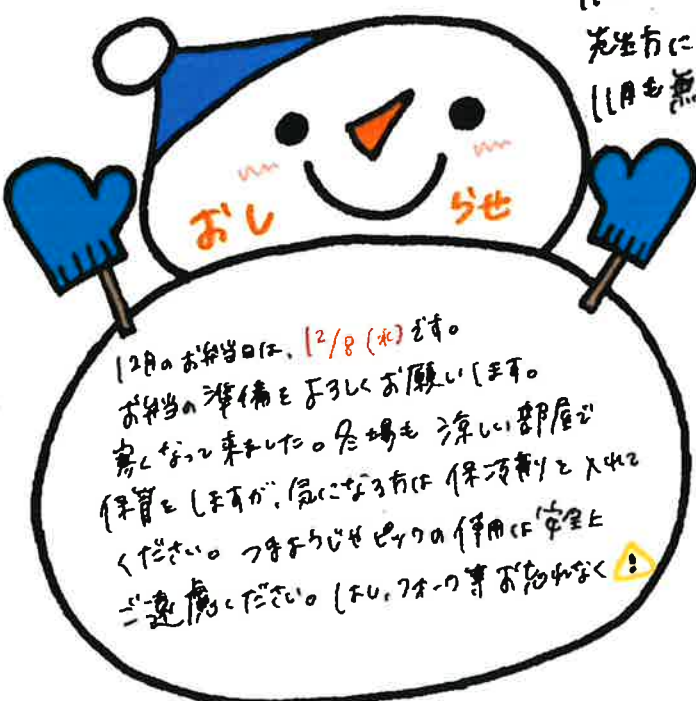 先生方に
11月も無
おしらせ
12月のお弁当日は、12/8(水)です。
お弁当の準備をよろしくお願いします。
寒くなって来ました。冬場も涼しい部屋で
保管をしますが、気になる方は保冷剤を入れて
ください。つまようじやピックの使用は安全上
ご遠慮ください。はし、フォーク等お忘れなく!